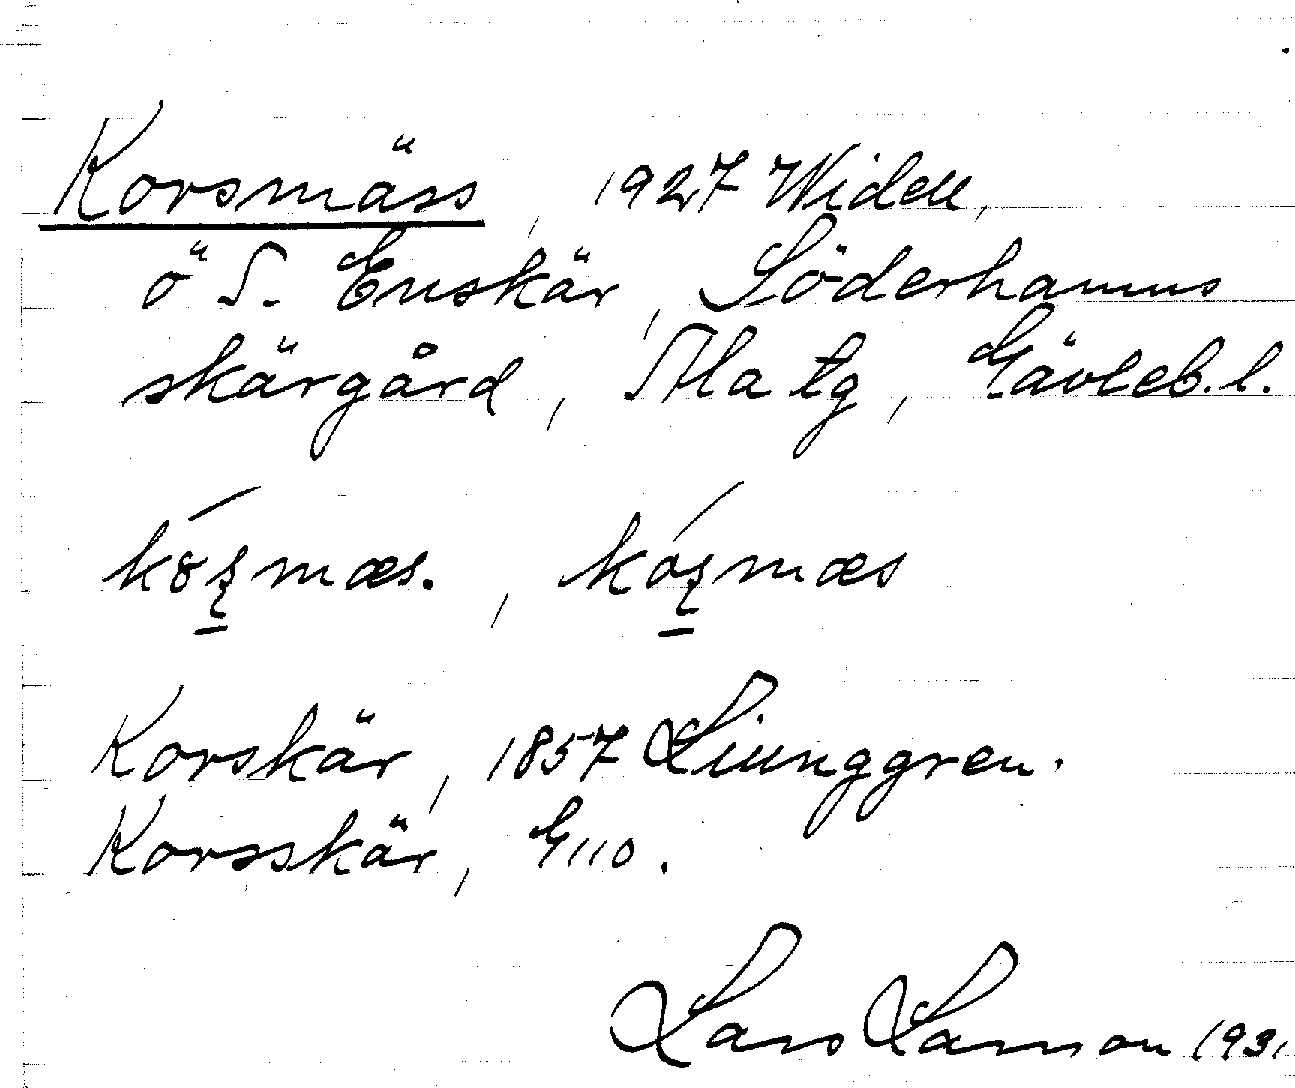 Korsmäss, 1927 Widell,
ö S. Enskär, Söderhamns
skärgård, Ala tg, Gävleb. l.
kózmæs., kózmæs
Korskär, 1857 Ljunggren.
Korsskär, G110.
Lars Larsson 1931